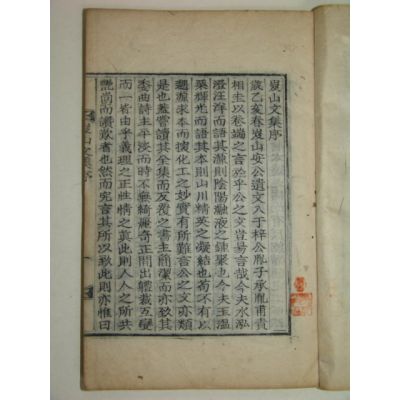 嵏山文集序
歲乙亥冬嵏山安公遺文入于梓公胤子承胤甫責
相圭以卷端之言於乎公之文豈易言哉今夫水泓
澄汪洋而語其源則陰陽融液之鍾聚也今夫玉溫
栗輝光而語其本則山川精英之凝結也苟不有以
泝源求本而探化工之妙實有所難言公文亦類
是也然嘗讀其全集而反覆之書主簡潔而亦致其
委曲詩主平淡而時不無綺麗奇正間出體裁互變
而一皆由乎義理之正性情之眞此則人人之所共
艷前而讚歎者也然而究言其所以致此則亦惟曰
嵏山文集序